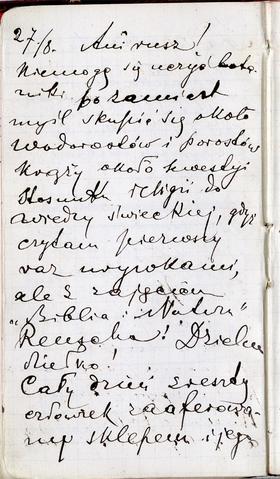 27/8. Ani rusz!
Niemogę się uczyć bota-
niki, bo zamiast
myśl skupić się około
wodorostów i porostów
krąży około kwestyi
stosunku religii do
wiedzy świeckiej, gdyż
czytam pierwszy
raz wyrokami,
ale z zajęciem
"Biblia i Natura"
Reuscha! Dzielne
dziełko!
Cały dzień zresztą
człowiek zaaferowa-
ny sklepem i jego